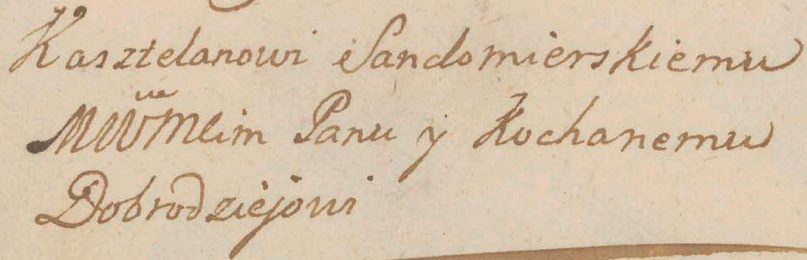 Kasztelanowi Sandomierskiemu
Panu y Kochanemu
Dobrodziejowi